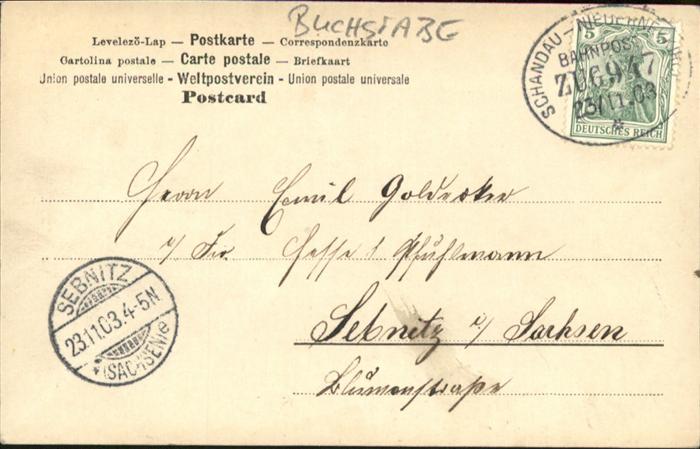 BUCHSTABE
Levelező-Lap — Postkarte — Correspondenzkarte
Cartolina postale — Carte postale — Briefkaart
Union postale universelle - Weltpostverein - Union postale universale
Postcard
SCHANDAU - NIEDERNEUKIRCH
BAHNPOST
ZUG 947
23/11.03
5 5
DEUTSCHES REICH
Herrn Emil Goldacker
Sebnitz i/ Sachsen
Blumenstraße
SEBNITZ
23.11.03.4-5N
(SACHSEN) e